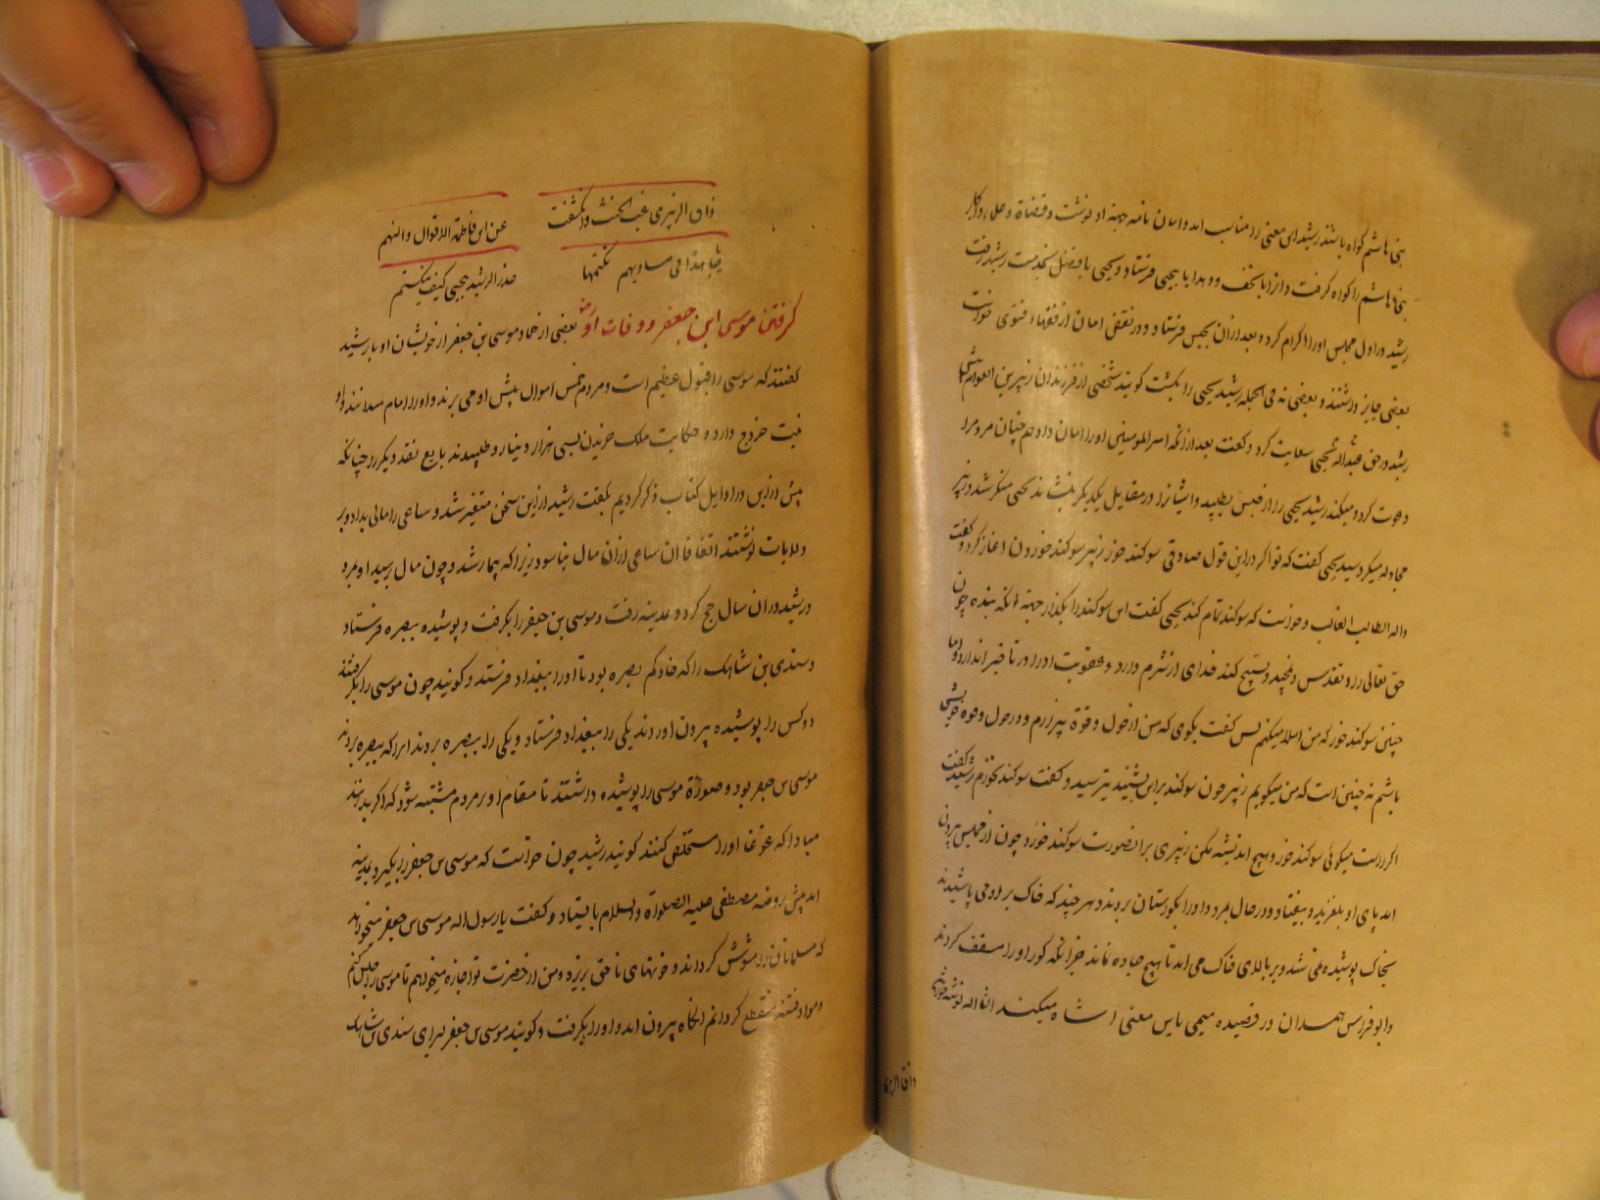 بنی هاشم گواه باشند رشید این معنی را مناسب آمد و امان نامه جهة او نوشت و قضاة و علماء و اکابر
بنی هاشم را گواه گرفت و آنرا با تحف و هدایا بیحیی فرستاد و یحیی با فضل بخدمت رشید رفت
رشید در اول مجلس او را اکرام کرد و بعد از آن بحبس فرستاد و در نقض امان از فقها فتوی خواست
بعضی جایز داشتند و بعضی نه فی الجمله رشید یحیی را بکشت گویند شخصی از فرزندان زبیر بن العوام پیش
رشید در حق عبداله یحیی سعایت کرد و گفت بعد از آنکه امیر المومنین او را امان داد هم چنان مردم را
دعوت کرد و میکند رشید یحیی را از حبس بطلبید و ایشانرا در مقابل یکدیگر بنشاند یحیی منکر شد و زبیر
مجادله میکرد سید یحیی گفت که تو اگر در این قول صادقی سوگند خور زبیر سوگند خوردن آغاز کرد و گفت
واله الطالب الغالب و خواست که سوگند تمام کند یحیی گفت این سوگند را بگذار جهة آنکه بنده چون
حق تعالی را و تقدس و تمجید و تسبیح کند خدای ازو شرم دارد و عقوبت او را در تاخیر اندازد و اما
چنین سوگند خور که من املا میکنم پس گفت بگوی که من از حول و قوة بیزارم و در حول و قوه خویش
باشم نه چنین است که من میگویم زبیر چون سوگند براین بشنید بترسید و گفت سوگند نخورم رشید گفت
اگر راست میگوئی سوگند خور و هیچ اندیشه مکن زبیری برانصورت سوگند خورد و چون از مجلس بیرون
آمد پای او بلغزید و بیفتاد و در حال بمرد و او را بگورستان بردند و هر چند که خاک برو می پاشیدند
بخاک پوشیده نمی شد و بر بالای خاک می آمد تا هیچ چاده نماند جز آنکه گور او را مسقف کردند
و ابو فراس همدان در قصیده میمی باین معنی اشاه میکند انشا اله نوشته خواهد
ذاق الزبیری غب الحنث وانکشفت
عن ابن فاطمة الاقوال والتهم
یا جاهدا فی مساویهم تکتمها
غدر الرشید بیحیی کیف ینکتم
گرفتن موسی ابن جعفر و وفات او رضه بعضی از حساد موسی بن جعفر از خویشان او با رشید
گفتند که موسی را قبول عظیم است و مردم خمس اموال پیش او می برند و او را امام میدانند و او
نیت خروج دارد و حکایت ملک خریدن بسی هزار دینار و طلبیدن بایع نقد دیگر را چنانکه
پیش ازین در اوایل کتاب ذکر کردیم بگفت رشید از این سخن متغیر شد و ساعی را مالی بداد و بر
ولایات نوشتند اتفاقا آن ساعی از آن مال نیاسود زیرا که بیمار شد و چون مال رسید او مرد
و رشید در آن سال حج کرد و بمدینه رفت و موسی بن جعفر را بگرفت و پوشیده ببصره فرستاد
و سندی بن شاهک را که حاکم بصره بود تا او را ببغداد فرستد و گویند چون موسی را بگرفتند
دو کس را پوشیده بیرون آوردند یکی را ببغداد فرستاد و یکی را ببصره بردند آنرا که ببصره بردند
موسی بن جعفر بود و صورة موسی را پوشیده داشتند تا مقام او بر مردم مشتبه شود که اگر بدانند
مبادا که غوغا او را مستخلص کنند گویند رشید چون خواست که موسی بن جعفر را بگیرد بمدینه
آمد پیش روضه مصطفی علیه الصلواة والسلام بایستاد و گفت یا رسول اله موسی بن جعفر میخواهد
که مسلمانان را مشوش گرداند و خونهای ناحق بریزد و من از حضرت تو اجازه میخواهم تا موسی را حبس کنم
و مواد فتنه منقطع گردانم آنگاه بیرون آمد و او را بگرفت و گویند موسی بن جعفر برای سندی بن شاهک